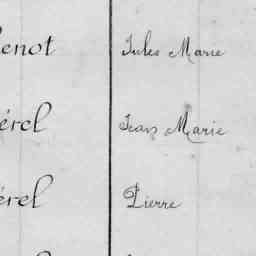 enot Jules Marie
érel Jean Marie
érel Pierre